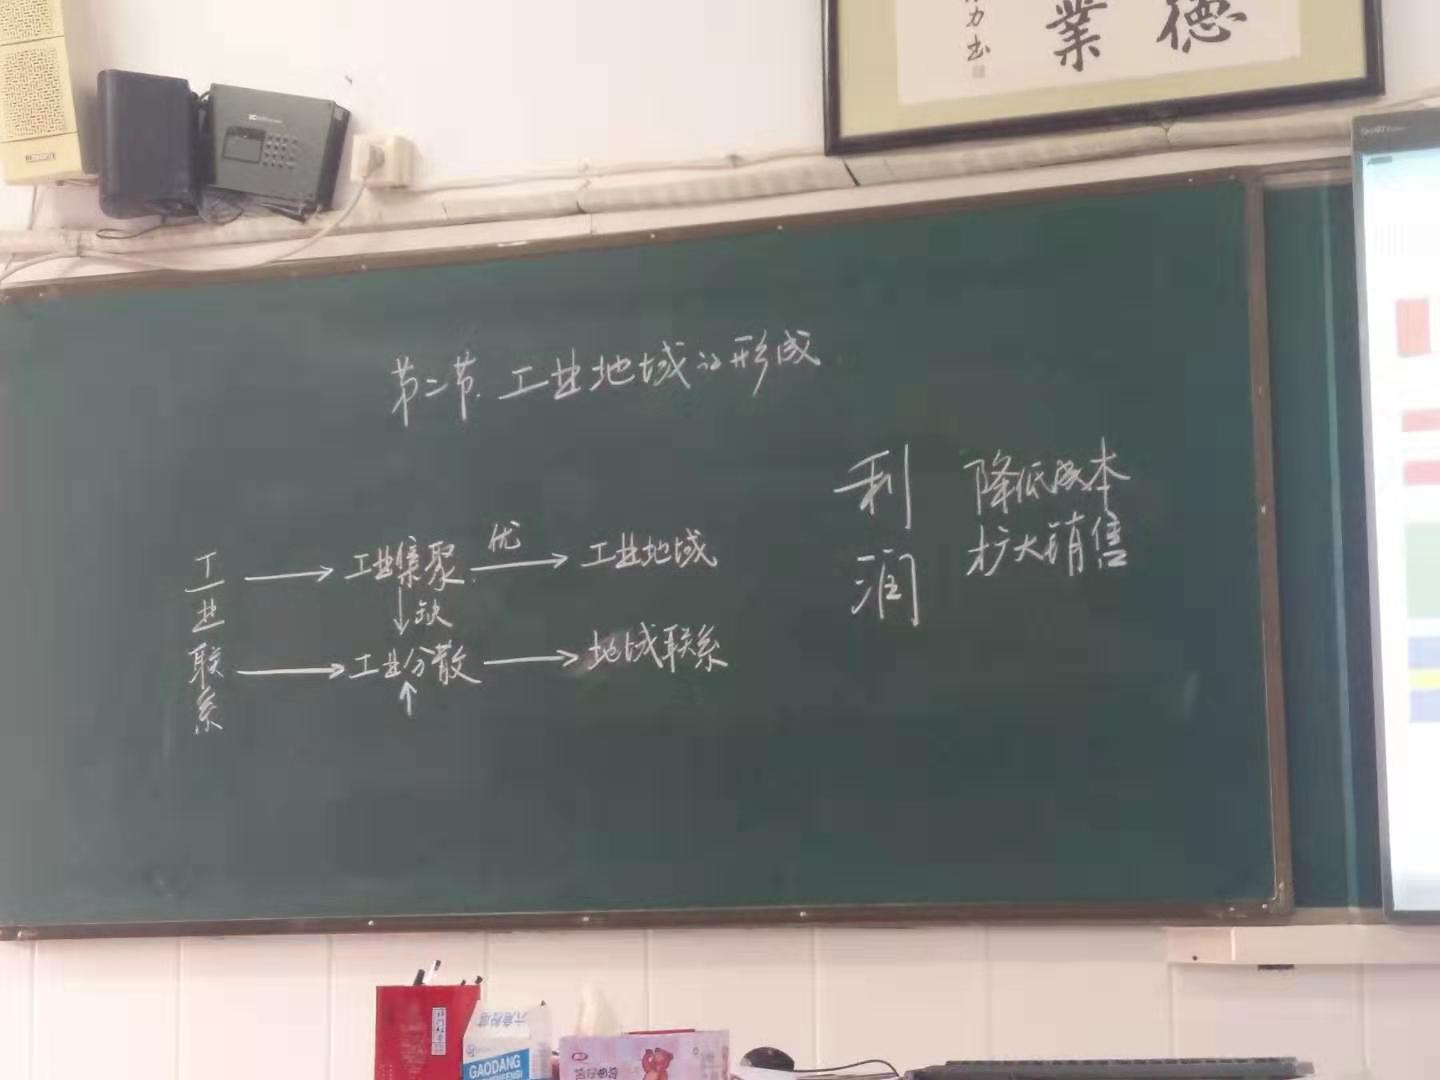 德
業
力书
第二节.工业地域的形成
工业联系
工业集聚
优
工业地域
缺
工业分散
地域联系
利润
降低成本
扩大销售
六角粉笔
GAODANG